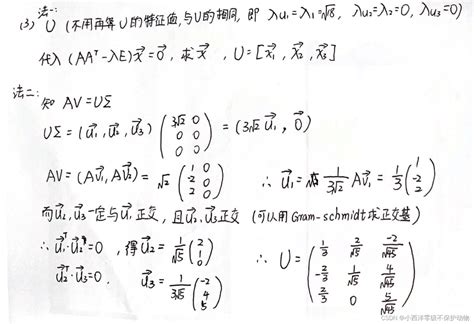 法一:
(3) U (不用再算U的特征值,与U的相同, 即 λu₁=λ₁=√18, λu₂=λ₂=0, λu₃=0)
代入 (AAᵀ-λE)x⃗=0⃗, 求x⃗, U=[x⃗₁, x⃗₂, x⃗₃]
法二: 知 AV=UΣ
UΣ=(u⃗₁, u⃗₂, u⃗₃) (3√2 0; 0 0; 0 0) = (3√2 u⃗₁, 0⃗)
AV=(Av⃗₁, Av⃗₂)=√2 (1 0; -2 0; 2 0) ∴ u⃗₁= 1/(3√2) Av⃗₁ = 1/3 (1; -2; 2)
而u⃗₂,u⃗₃一定与u⃗₁正交, 且u⃗₂,u⃗₃正交 (可以用Gram-schmidt求正交基)
∴ u⃗₁ᵀ·u⃗₂=0, 得u⃗₂= 1/√5 (2; 1; 0) ∴ U= (1/3 2/√5 -2/√45; -2/3 1/√5 4/√45; 2/3 0 5/√45)
u⃗₂ᵀ·u⃗₃=0. u⃗₃= 1/(3√5) (-2; 4; 5)
CSDN @小西洋零级不保护动物